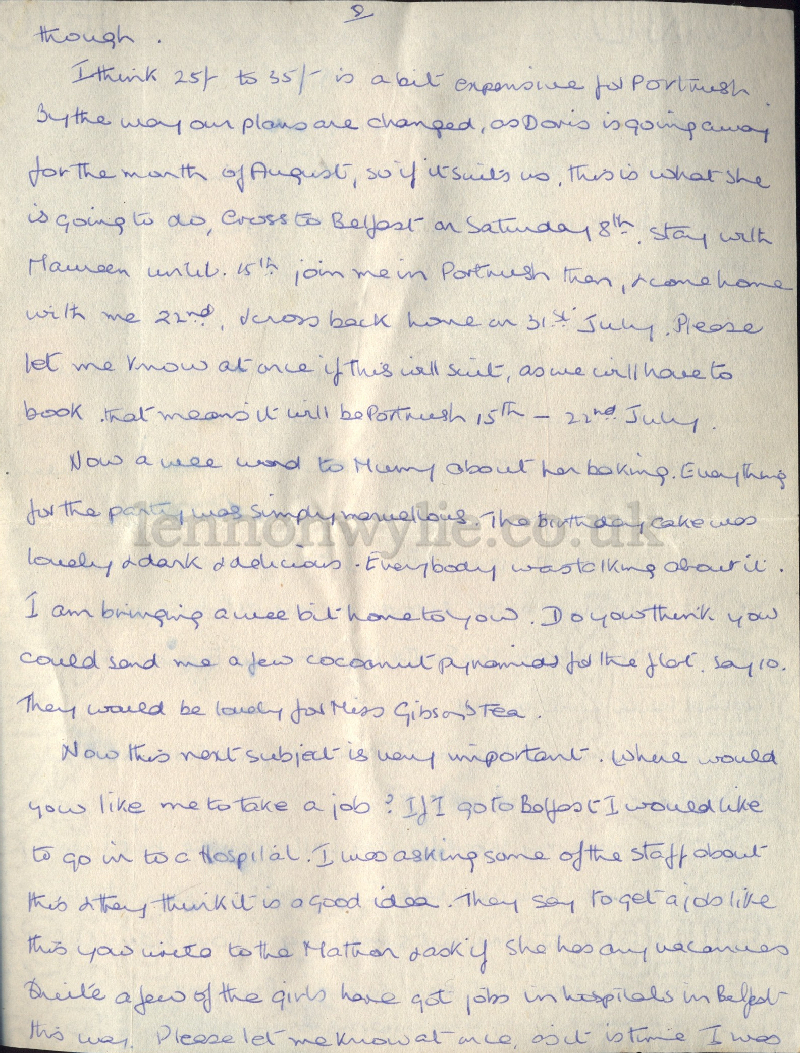 8
though.
I think 25/- to 35/- is a bit expensive for Portrush
By the way our plans are changed, as Doris is going away
for the month of August, so if it suits us, this is what she
is going to do, Cross to Belfast on Saturday 8th, stay with
Maureen until 15th join me in Portrush then, & come home
with me 22nd, & cross back home on 31st July. Please
let me know at once if this will suit, as we will have to
book. that means it will be Portrush 15th – 22nd July.
Now a wee word to Mumy about her baking. Everything
for the party was simply marvellous. The birthday cake was
lennonwylie.co.uk
lovely & dark & delicious. Everybody was talking about it.
I am bringing a wee bit home to you. Do you think you
could send me a few cocoanut pyramids for the flat. say 10.
They would be lovely for Miss Gibson's Tea.
Now this next subject is very important. Where would
you like me to take a job? If I go to Belfast I would like
to go in to a Hospital. I was asking some of the staff about
this & they think it is a good idea. They say to get a job like
this you write to the Matron & ask if she has any vacancies
Quite a few of the girls have got jobs in hospitals in Belfast
this way. Please let me know at once, as it is time I was